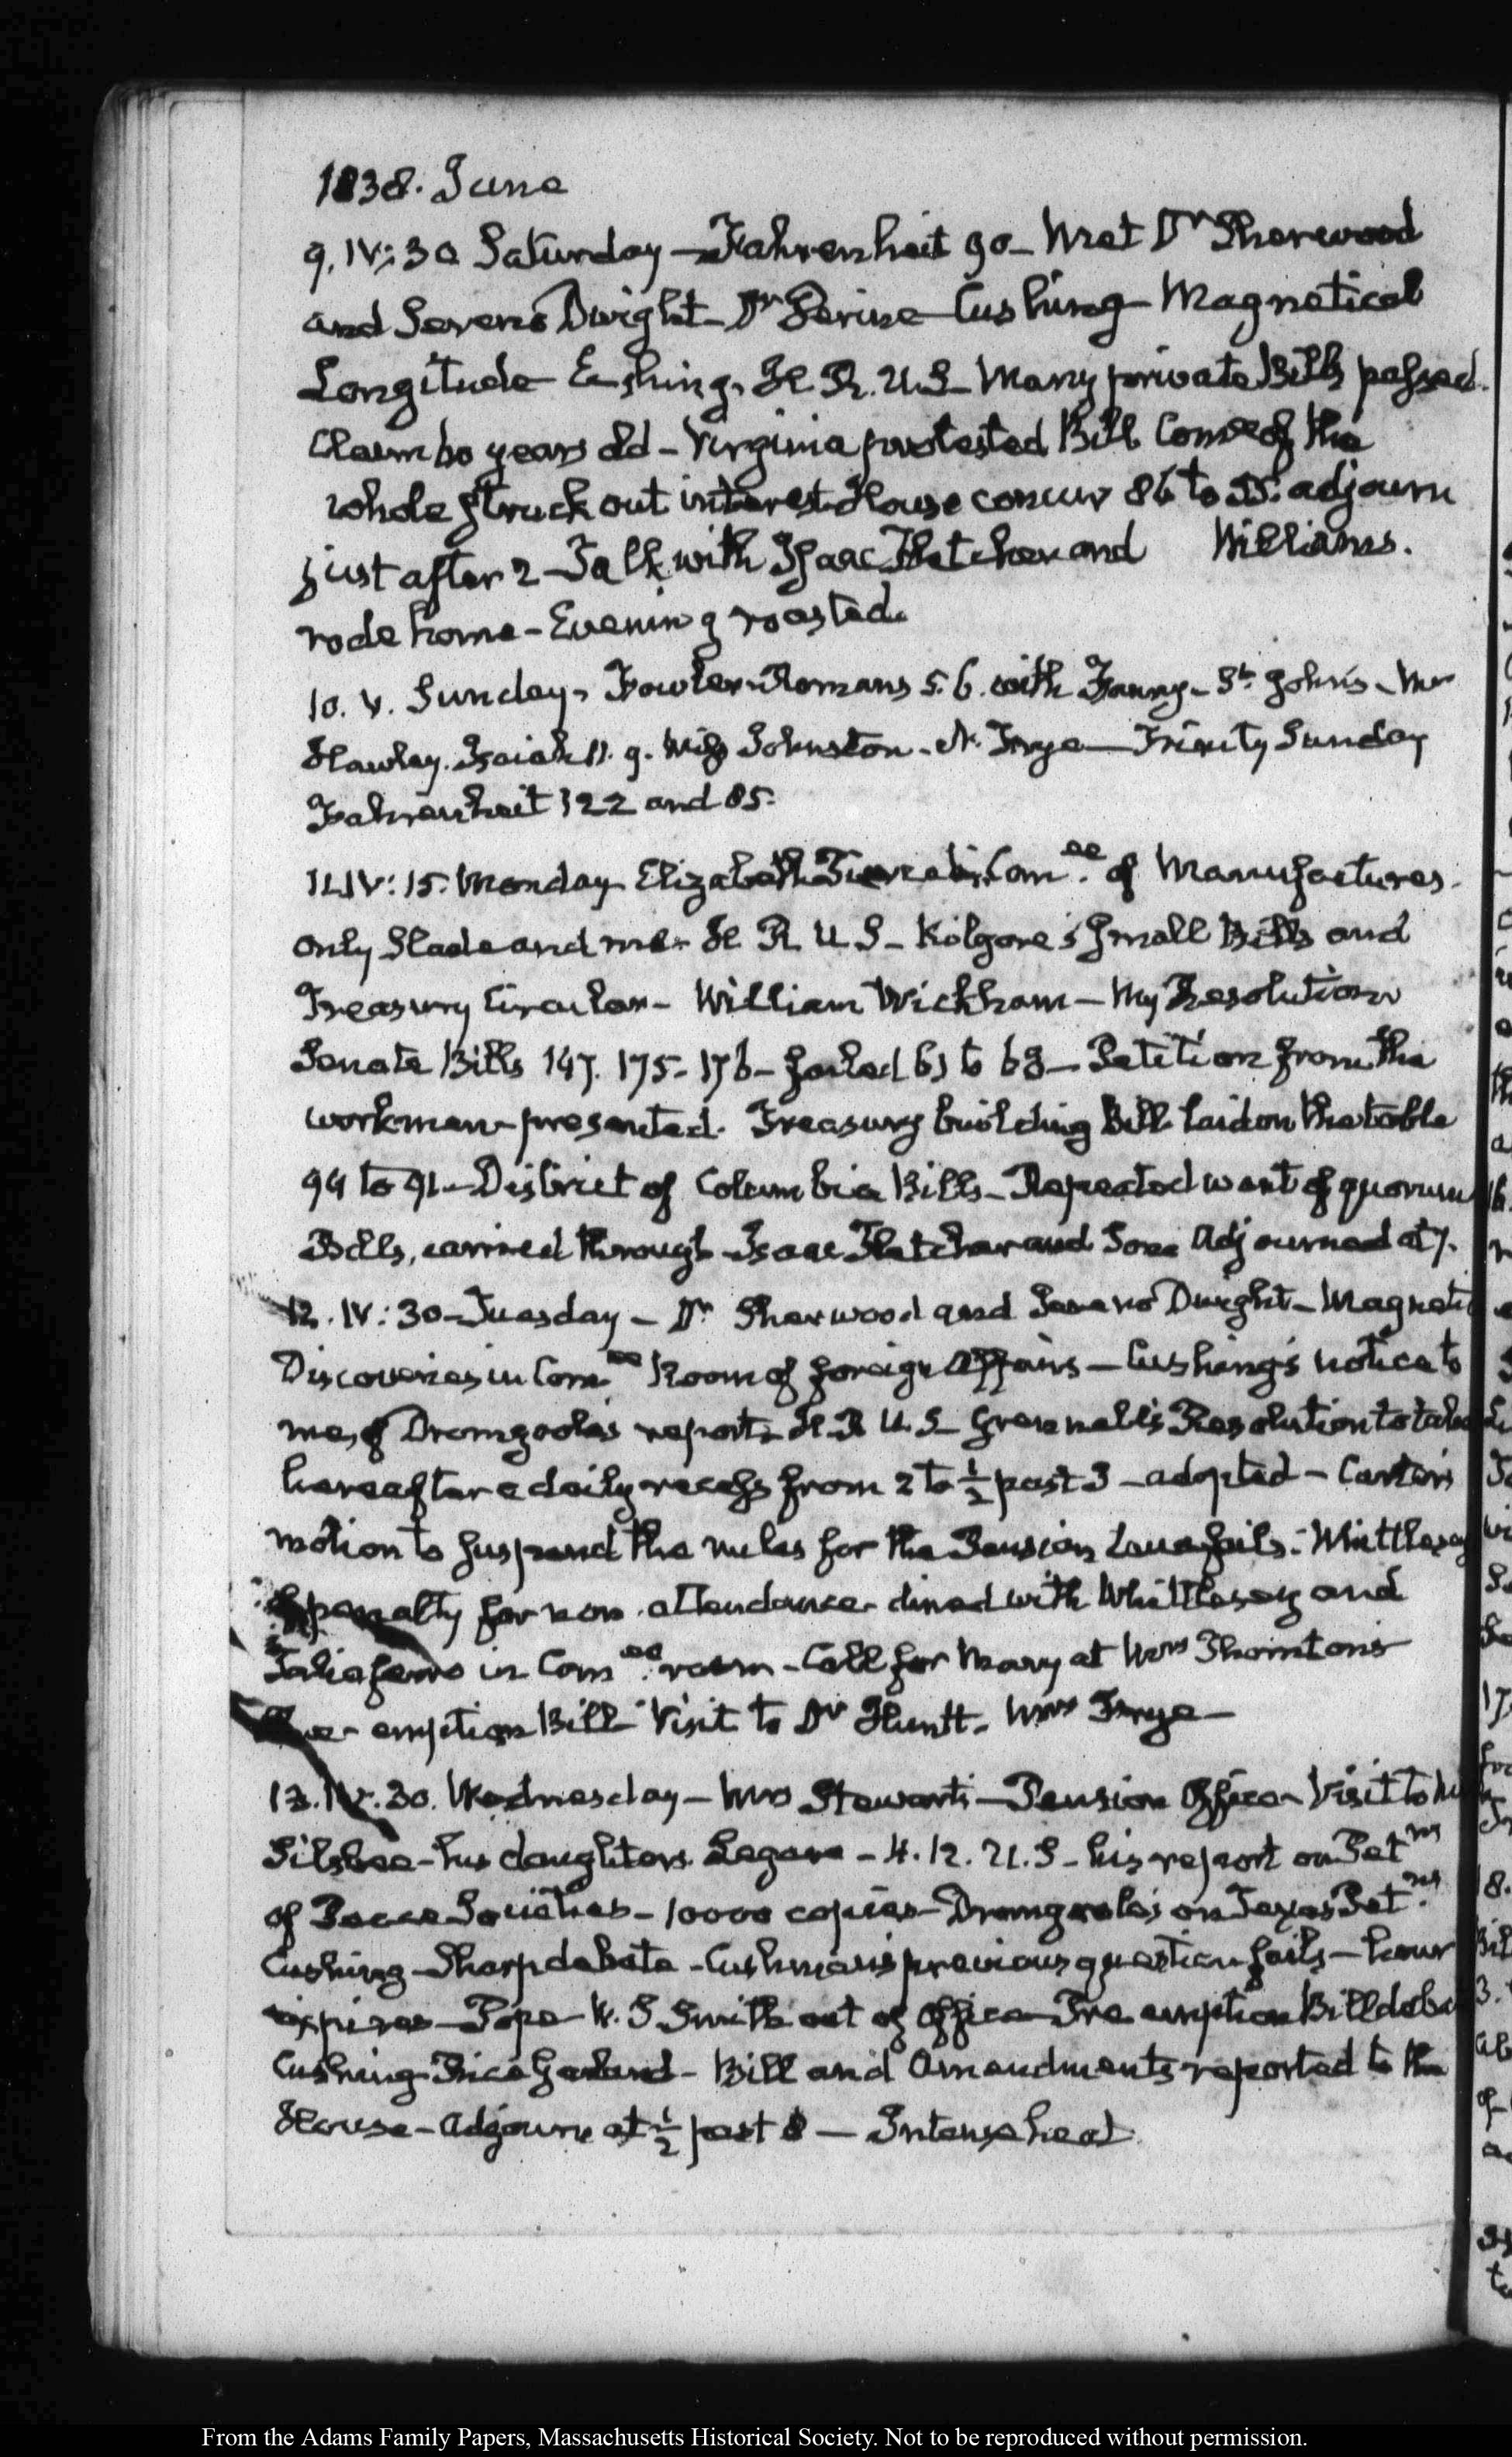 1838. June
9. IV:30 Saturday — Fahrenheit 90 — Met Dr Sherwood
and Sereno Dwight — Dr Cushing — Magnetical
Longitude H. R. U.S — Many private Bills passed.
Claim 60 years old — Virginia protested Bill Comee of the
whole struck out interest House concur 86 to 55. adjourn
just after 2 — Talk with Isaac Fletcher and Williams.
rode home — Evening roasted.
10. V. Sunday, Fowler. Romans 5. 6. with Fanny — St Johns — Mr
Hawley. Isaiah 11. 9. Miss Johnston — N. Frye — Trinity Sunday
Fahrenheit 122 and 85.
11. IV:15. Monday Elizabeth Comee of Manufactures.
only Slade and me — H R U S — Kilgore's small Bills and
Treasury Circular — William Wickham — My Resolution
Senate Bills 147. 175 — 176 — failed 61 to 63 — Petition from the
workmen presented. Treasury building Bill laid on the table
94 to 91 — District of Columbia Bills — Repeated want of quorum
Bills, carried through — Isaac Fletcher and Adjourned at 7.
12. IV:30 — Tuesday — Dr Sherwood and Sereno Dwight — Magnetic
Discoveries in Comee Room of foreign Affairs — Cushing's notice to
me, of Dromgoole's report — H. R U. S — Grennell's Resolution to take
hereafter a daily recess from 2 to ½ past 3 — adopted — Carter's
motion to suspend the rules for the Pension Laws fails — Whittlesey
penalty for non attendance — dined with Whittlesey and
Taliaferro in Comee room — Call for Mary at Mrs Thornton's
Pre-emption Bill — Visit to Dr Huntt — Mrs Frye —
13. IV. 30. Wednesday — Mrs Stewart — Pension Office — Visit to Mr
Silsbee — his daughters. Legare — H. R. U. S — his report on Petns
of Peace Societies — 10000 copies — Dromgoole's on Texas Petns
Cushing — Sharp debate — Cushman's previous question fails — hour
expires — Pope — W. S Smith out of office — Pre emption Bill deba
Cushing Rice Garland — Bill and Amendments reported to the
House — Adjourn at ½ past 8 — Intense heat
From the Adams Family Papers, Massachusetts Historical Society. Not to be reproduced without permission.